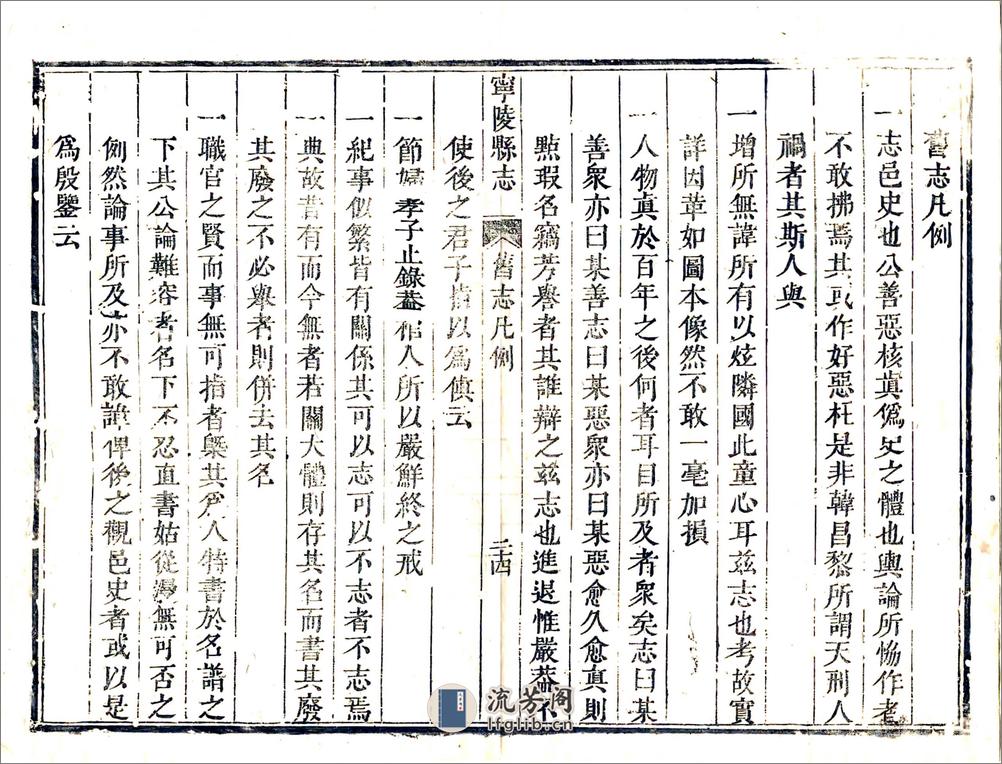 舊志凡例
一志邑史也公善惡核眞僞史之體也輿論所恊作者
不敢拂焉其或作好惡枉是非韓昌黎所謂天刑人
禍者其斯人與
一增所無諱所有以炫隣國此童心耳茲志也考故實
詳因革如圖本像然不敢一毫加損
一人物眞於百年之後何者耳目所及者衆矣志曰某
善衆亦曰某善志曰某惡衆亦曰某惡愈久愈真則
㸃瑕名竊芳譽者其誰辯之茲志也進退惟嚴葢不
寧陵縣志
舊志凡例
二四
使後之君子指以爲傎云
一節婦孝子止錄葢棺人所以嚴鮮終之戒
一紀事似繁皆有關係其可以志可以不志者不志焉
一典故昔有而今無者若關大體則存其名而書其廢
其廢之不必舉者則併去其名
一職官之賢而事無可指者槩其爲人特書於名譜之
下其公論難容者名下不忍直書姑從漫無可否之
例然論事所及亦不敢諱俾後之觀邑史者或以是
爲殷鑒云
流芳阁
lfglib.cn